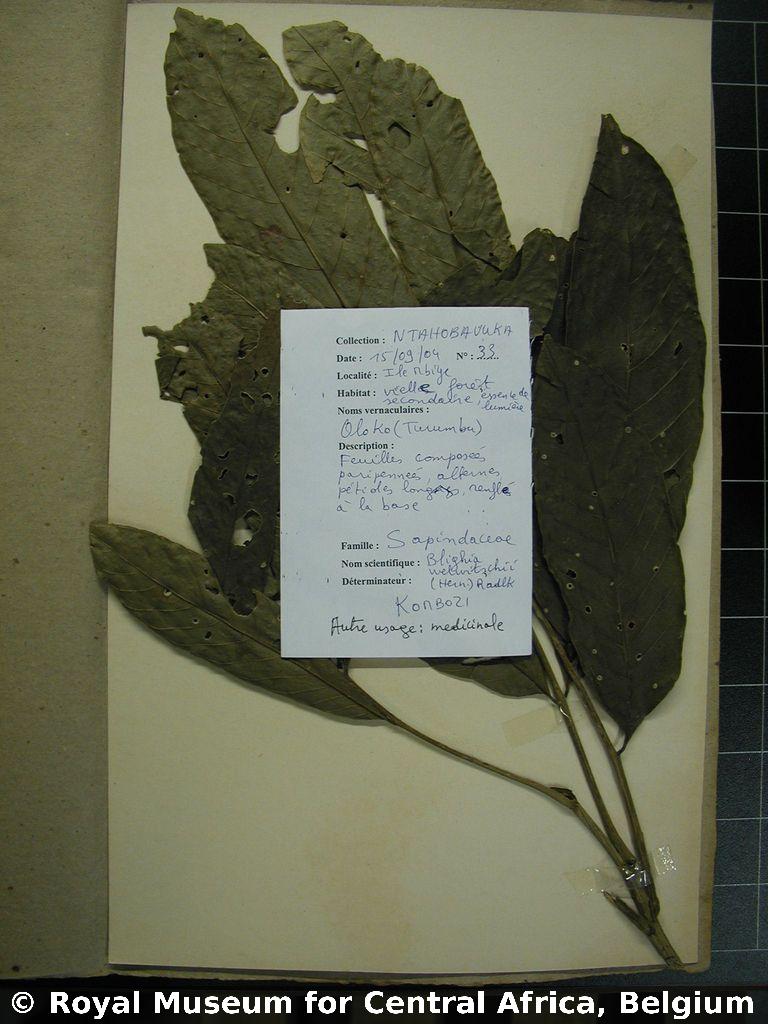 Collection : NTAHOBAVUKA
Date : 15/09/04 N° : 33
Localité : Ile Mbiye
Habitat : vielle forest
secondaire, essence de
lumière
Noms vernaculaires :
Oloko (Turumbu)
Description :
Feuilles composées
paripennées, alternes
pétioles longs, renflé
à la base
Famille : Sapindaceae
Nom scientifique : Blighia
welwitschii
Déterminateur : (Hiern) Radlk
KOMBOZI
Autre usage : medicinale
© Royal Museum for Central Africa, Belgium